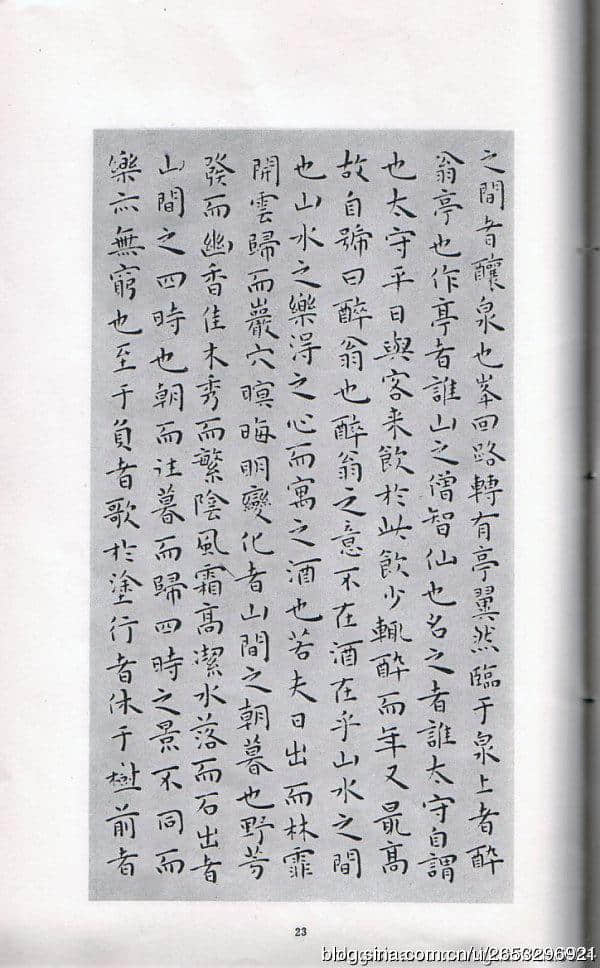 之間者釀泉也峯回路轉有亭翼然臨于泉上者醉
翁亭也作亭者誰山之僧智仙也名之者誰太守自謂
也太守平日與客来飲於此飲少輒醉而年又最高
故自號曰醉翁也醉翁之意不在酒在乎山水之間
也山水之樂淂之心而寓之酒也若夫日出而林霏
開雲歸而巖穴暝晦明變化者山間之朝暮也野芳
發而幽香佳木秀而繁陰風霜高潔水落而石出者
山間之四時也朝而往暮而歸四時之景不同而
樂亦無窮也至于負者歌於塗行者休于樹前者
23
blog.sina.com.cn/u/2653296921